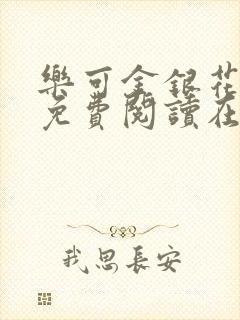 樂可金銀花
免費閱讀在
我思長安